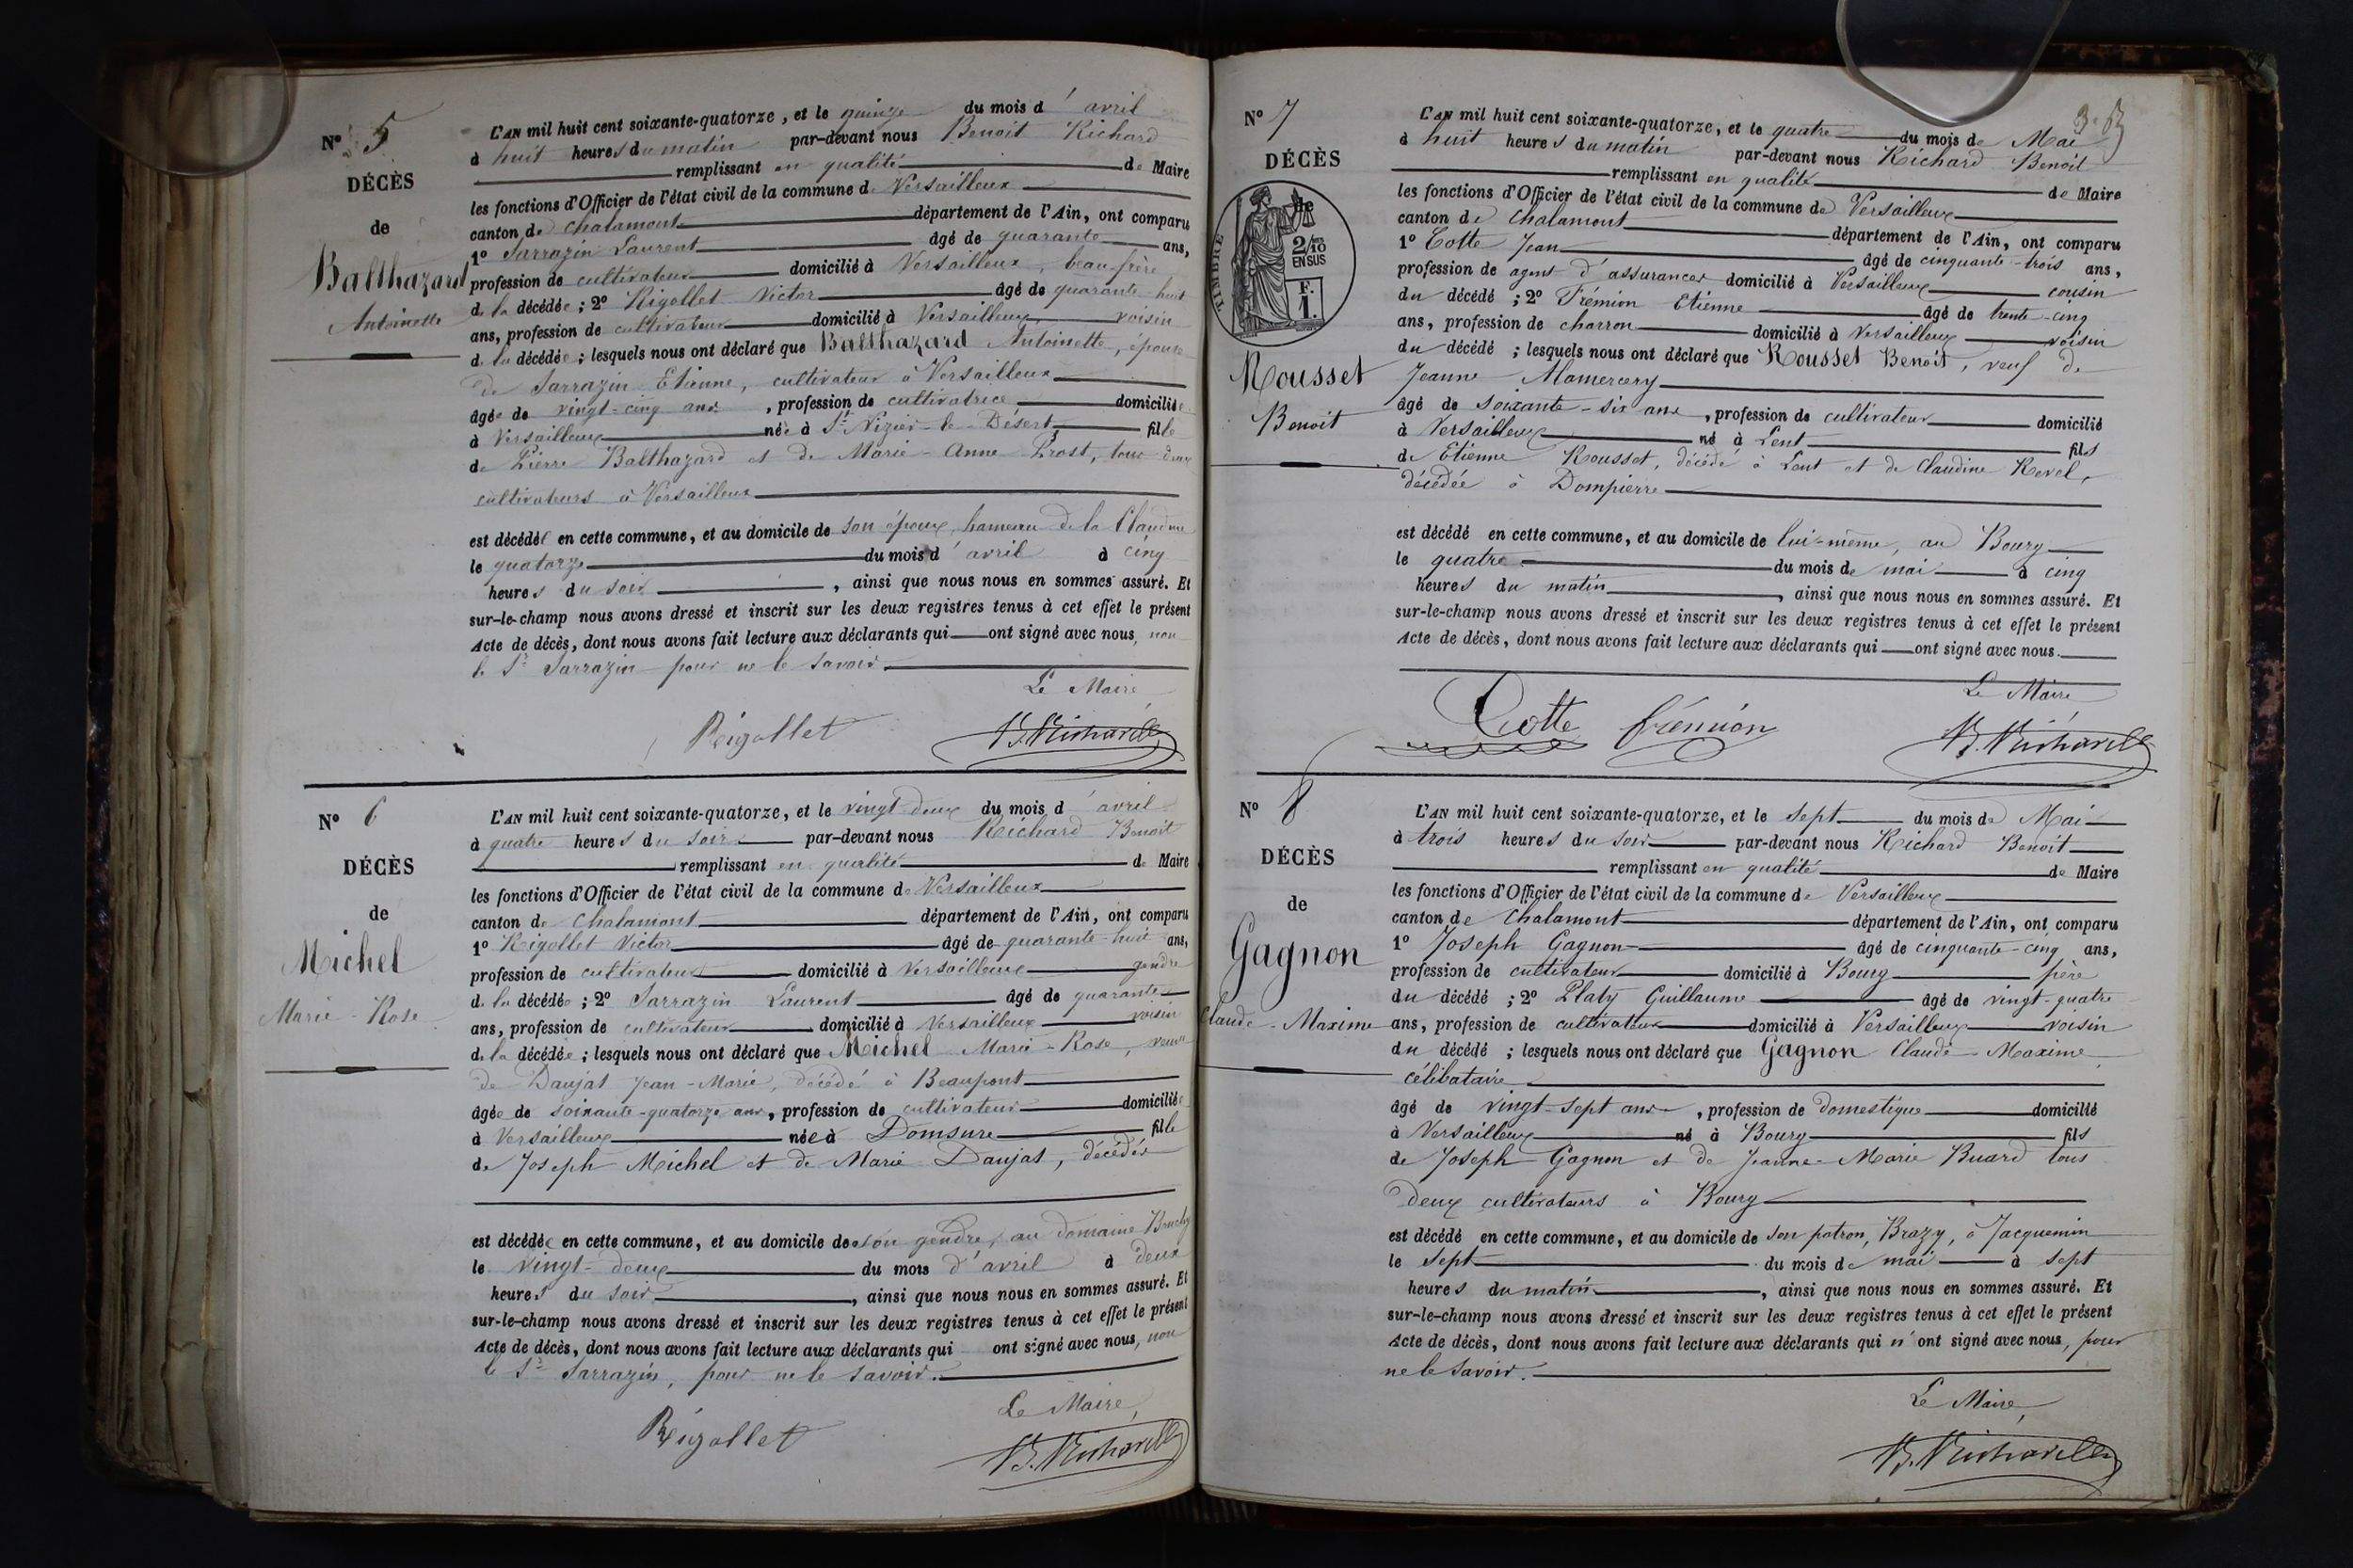 Nº 5
DÉCÈS
de
Balthazard
Antoinette
L'AN mil huit cent soixante-quatorze, et le quinze du mois d'avril
à huit heures du matin par-devant nous Benoit Richard
remplissant en qualité de Maire
les fonctions d'Officier de l'état civil de la commune de Versailleux
canton de Chalamont département de l'Ain, ont comparu
1º Sarrazin Laurent âgé de quarante ans,
profession de cultivateur domicilié à Versailleux, beau frère
de la décédée ; 2º Rigollet Victor âgé de quarante-huit
ans, profession de cultivateur domicilié à Versailleux voisin
de la décédée ; lesquels nous ont déclaré que Balthazard Antoinette, épouse
de Sarrazin Etienne, cultivateur à Versailleux
âgée de vingt-cinq ans, profession de cultivatrice domiciliée
à Versailleux née à St Nizier-le-Désert fille
de Pierre Balthazard et de Marie-Anne Prost, tous deux
cultivateurs à Versailleux
est décédée en cette commune, et au domicile de son époux, hameau de la
le quatorze du mois d'avril à cinq
heures du soir, ainsi que nous nous en sommes assuré. Et
sur-le-champ nous avons dressé et inscrit sur les deux registres tenus à cet effet le présent
Acte de décès, dont nous avons fait lecture aux déclarants qui ont signé avec nous, non
le Sr Sarrazin pour ne le savoir
Le Maire
Rigollet B. Richard
Nº 6
DÉCÈS
de
Michel
Marie-Rose
L'AN mil huit cent soixante-quatorze, et le vingt-deux du mois d'avril
à quatre heures du soir par-devant nous Richard Benoit
remplissant en qualité de Maire
les fonctions d'Officier de l'état civil de la commune de Versailleux
canton de Chalamont département de l'Ain, ont comparu
1º Rigollet Victor âgé de quarante-huit ans,
profession de cultivateur domicilié à Versailleux gendre
de la décédée ; 2º Sarrazin Laurent âgé de quarante
ans, profession de cultivateur domicilié à Versailleux voisin
de la décédée ; lesquels nous ont déclaré que Michel Marie-Rose, veuve
de Daujat Jean-Marie, décédé à Beaupont
âgée de soixante-quatorze ans, profession de cultivateur domiciliée
à Versailleux née à Domsure fille
de Joseph Michel et de Marie Daujat, décédés
est décédée en cette commune, et au domicile de son gendre, au domaine
le vingt-deux du mois d'avril à deux
heures du soir, ainsi que nous nous en sommes assuré. Et
sur-le-champ nous avons dressé et inscrit sur les deux registres tenus à cet effet le présent
Acte de décès, dont nous avons fait lecture aux déclarants qui ont signé avec nous, non
le Sr Sarrazin, pour ne le savoir.
Le Maire,
Rigollet B. Richard
Nº 7
DÉCÈS
de
TIMBRE
2/10
EN SUS
F.
1.
Rousset
Benoit
L'AN mil huit cent soixante-quatorze, et le quatre du mois de Mai
à huit heures du matin par-devant nous Richard Benoit
remplissant en qualité de Maire
les fonctions d'Officier de l'état civil de la commune de Versailleux
canton de Chalamont département de l'Ain, ont comparu
1º Cotte Jean âgé de cinquante-trois ans,
profession de agent d'assurances domicilié à Versailleux cousin
du décédé ; 2º Frémion Etienne âgé de trente-cinq
ans, profession de charron domicilié à Versailleux voisin
du décédé ; lesquels nous ont déclaré que Rousset Benoit, veuf de
Jeanne Mamercery
âgé de soixante-six ans, profession de cultivateur domicilié
à Versailleux né à Lent fils
de Etienne Rousset, décédé à Lent et de Claudine Revel,
décédée à Dompierre
est décédé en cette commune, et au domicile de lui-même, au Bourg
le quatre du mois de mai à cinq
heures du matin, ainsi que nous nous en sommes assuré. Et
sur-le-champ nous avons dressé et inscrit sur les deux registres tenus à cet effet le présent
Acte de décès, dont nous avons fait lecture aux déclarants qui ont signé avec nous.
Le Maire
Cotte frémion B. Richard
Nº 8
DÉCÈS
de
Gagnon
Claude-Maxime
L'AN mil huit cent soixante-quatorze, et le sept du mois de Mai
à trois heures du soir par-devant nous Richard Benoit
remplissant en qualité de Maire
les fonctions d'Officier de l'état civil de la commune de Versailleux
canton de Chalamont département de l'Ain, ont comparu
1º Joseph Gagnon âgé de cinquante-cinq ans,
profession de cultivateur domicilié à Bourg père
du décédé ; 2º Platy Guillaume âgé de vingt-quatre
ans, profession de cultivateur domicilié à Versailleux voisin
du décédé ; lesquels nous ont déclaré que Gagnon Claude-Maxime
célibataire
âgé de vingt-sept ans, profession de domestique domicilié
à Versailleux né à Bourg fils
de Joseph Gagnon et de Jeanne-Marie Buard tous
deux cultivateurs à Bourg
est décédé en cette commune, et au domicile de son patron, Brazy, à Jacquemin
le sept du mois de mai à sept
heures du matin, ainsi que nous nous en sommes assuré. Et
sur-le-champ nous avons dressé et inscrit sur les deux registres tenus à cet effet le présent
Acte de décès, dont nous avons fait lecture aux déclarants qui n'ont signé avec nous, pour
ne le savoir.
Le Maire,
B. Richard